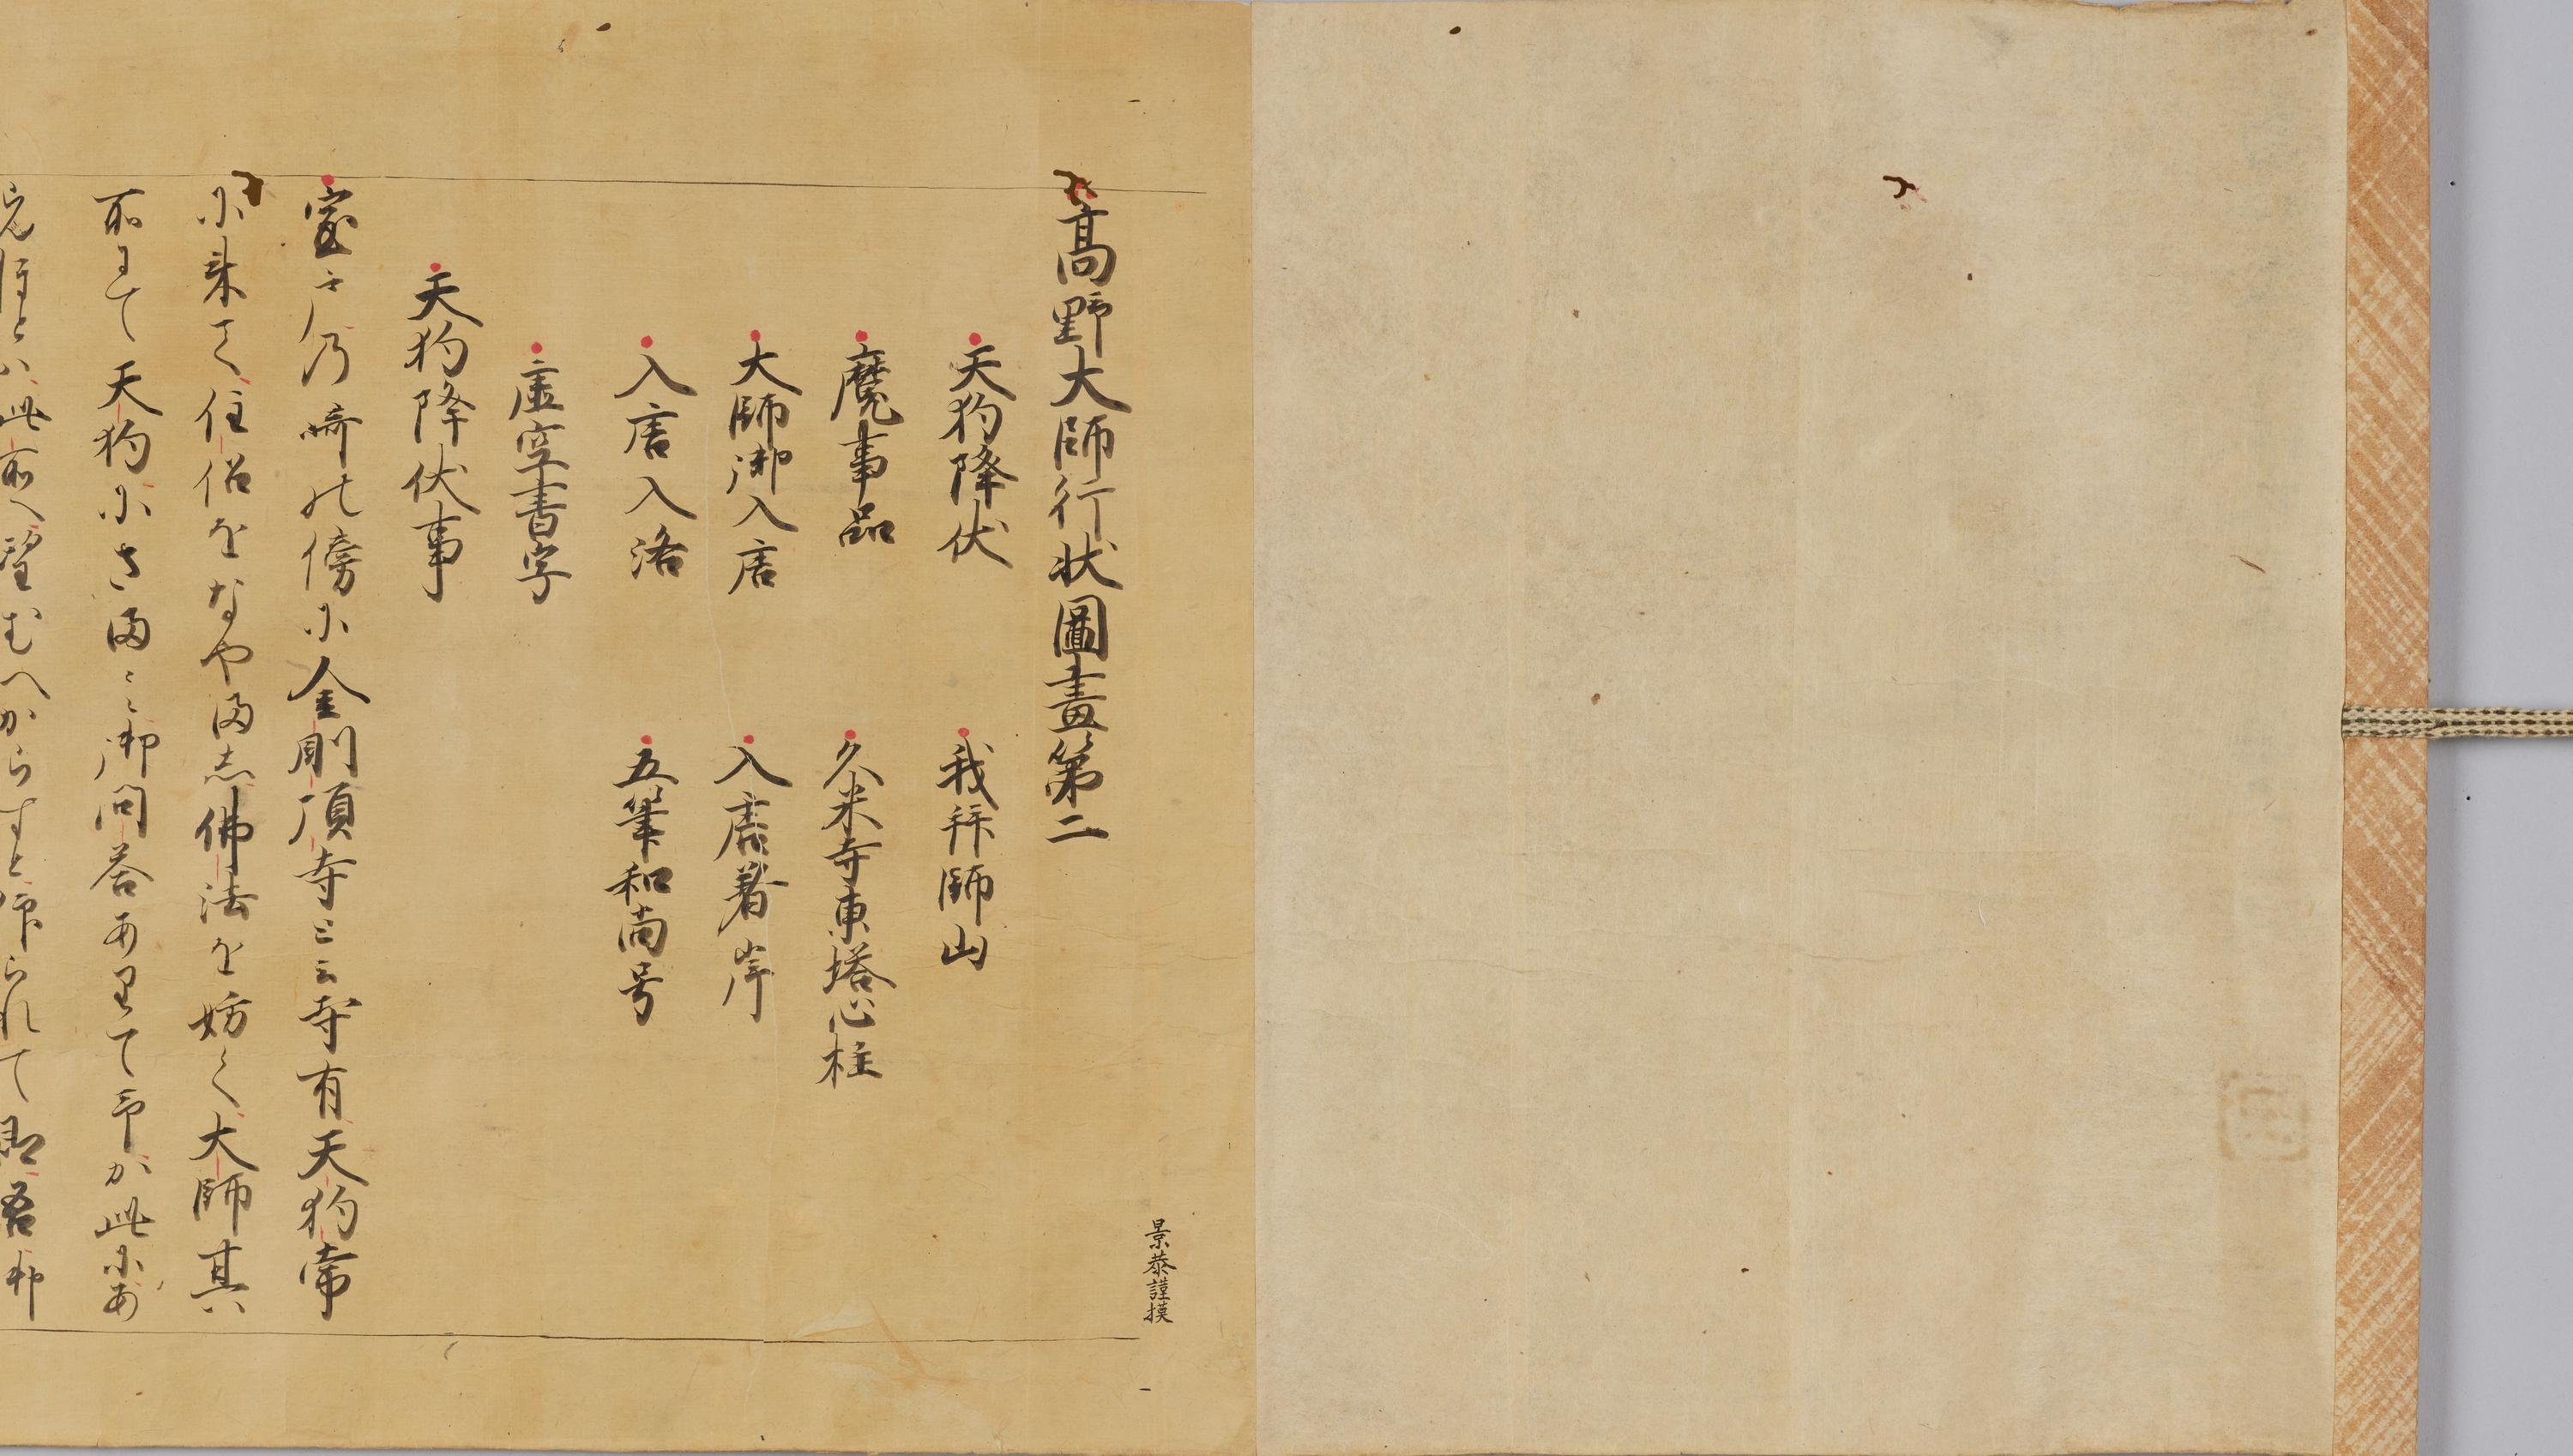 景恭謹摸
高野大師行状圖畫第二
天狗降伏　我拝師山
魔事品　久米寺東塔心柱
大師御入唐　入唐著岸
入唐入洛　五筆和尚号
虚空書字
天狗降伏事
室戸乃崎の傍に金剛頂寺と云寺有天狗常
に来て住侶をなやまし佛法を妨く大師其
所にて天狗にさま〻〻御問答ありて吾か此にあ
らん程は此所へ望むへからすと仰られて即吾御